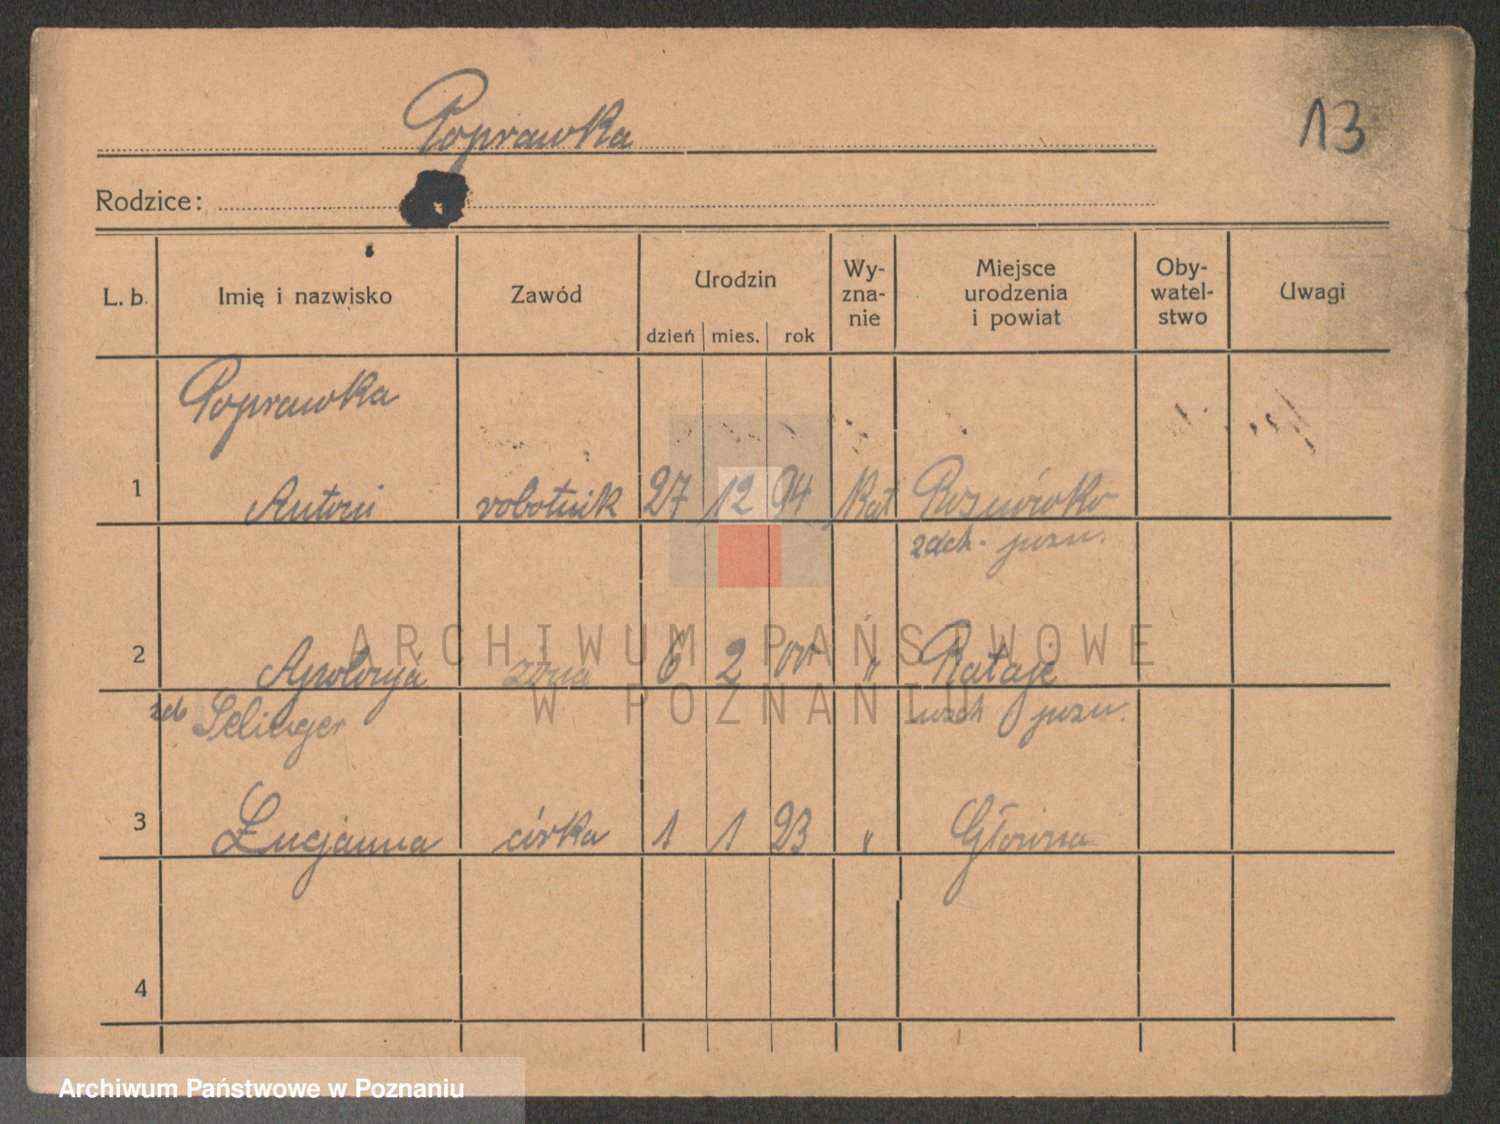 Poprawka
13
Rodzice:
L. b. Imię i nazwisko Zawód Urodzin dzień mies. rok Wy-zna-nie Miejsce urodzenia i powiat Oby-watel-stwo Uwagi
Poprawka
1 Antoni robotnik 27 12 94 Kat Rosnówko
zach. pozn.
2 Apolonja żona 6 2 00 " Rataje
zd. Selinger wsch pozn.
3 Łucjanna córka 1 1 23 " Główna
4
ARCHIWUM PAŃSTWOWE
W POZNANIU
Archiwum Państwowe w Poznaniu